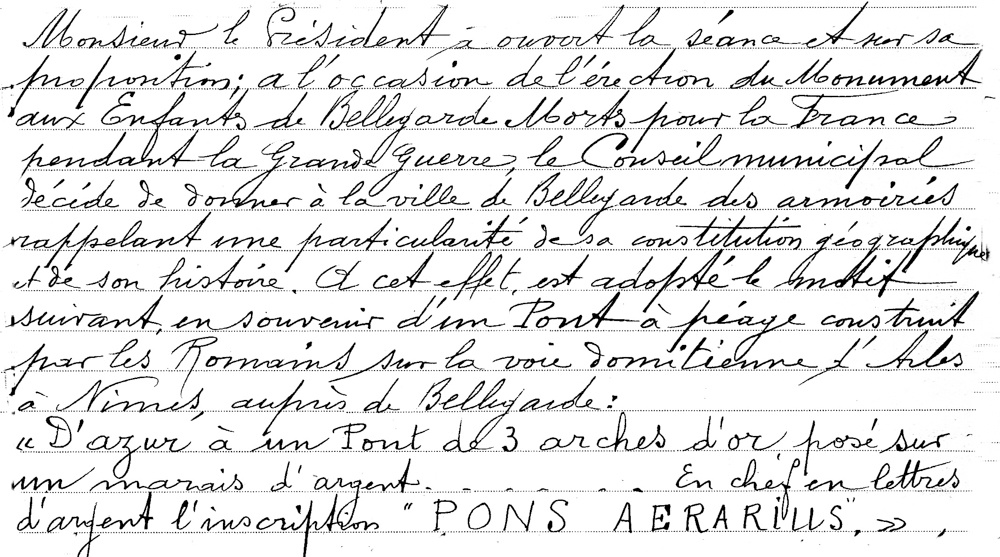 Monsieur le Président à ouvert la séance et sur sa
proposition; a l'occasion de l'érection du Monument
aux Enfants de Bellegarde Morts pour la France
pendant la Grande Guerre, le Conseil municipal
décide de donner à la ville de Bellegarde des armoiries
rappelant une particularité de sa constitution géographique
et de son histoire. A cet effet, est adopté le motif
suivant, en souvenir d'un Pont à péage construit
par les Romains sur la voie domitienne d'Arles
à Nimes, auprès de Bellegarde:
« D'azur à un Pont de 3 arches d'or posé sur
un marais d'argent. - - - - . . En chef en lettres
d'argent l'inscription "PONS AERARIUS". »,